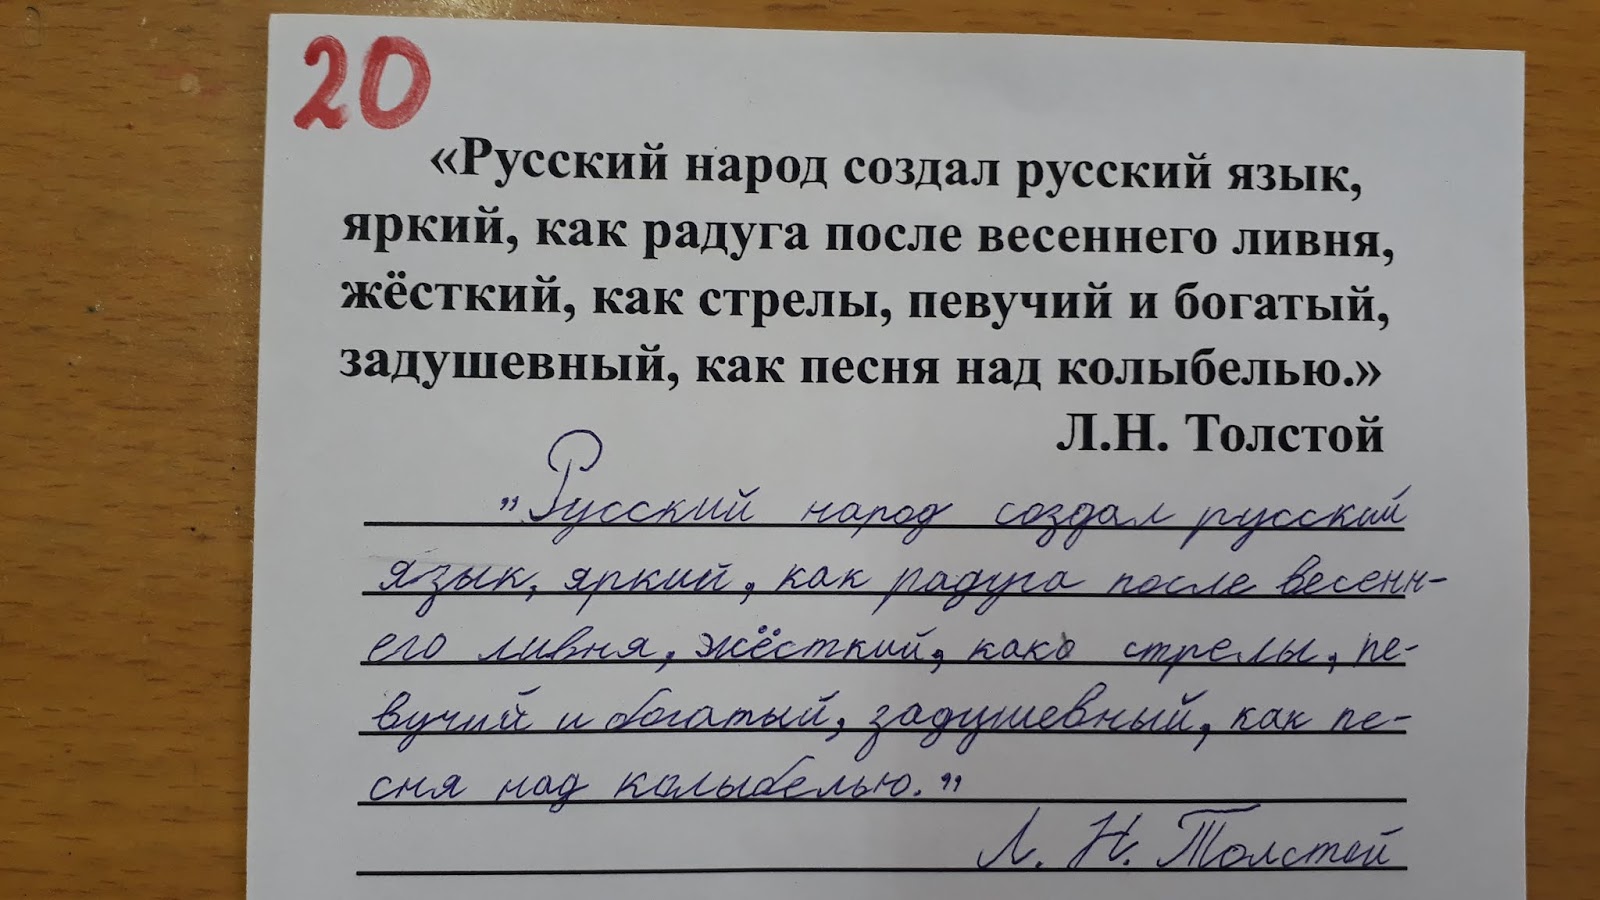 20
«Русский народ создал русский язык,
яркий, как радуга после весеннего ливня,
жёсткий, как стрелы, певучий и богатый,
задушевный, как песня над колыбелью.»
Л.Н. Толстой
„Русский народ создал русский
язык, яркий, как радуга после весенн-
его ливня, жёсткий, како стрелы, пе-
вучий и богатый, задушевный, как пе-
сня над колыбелью.”
Л. Н. Толстой